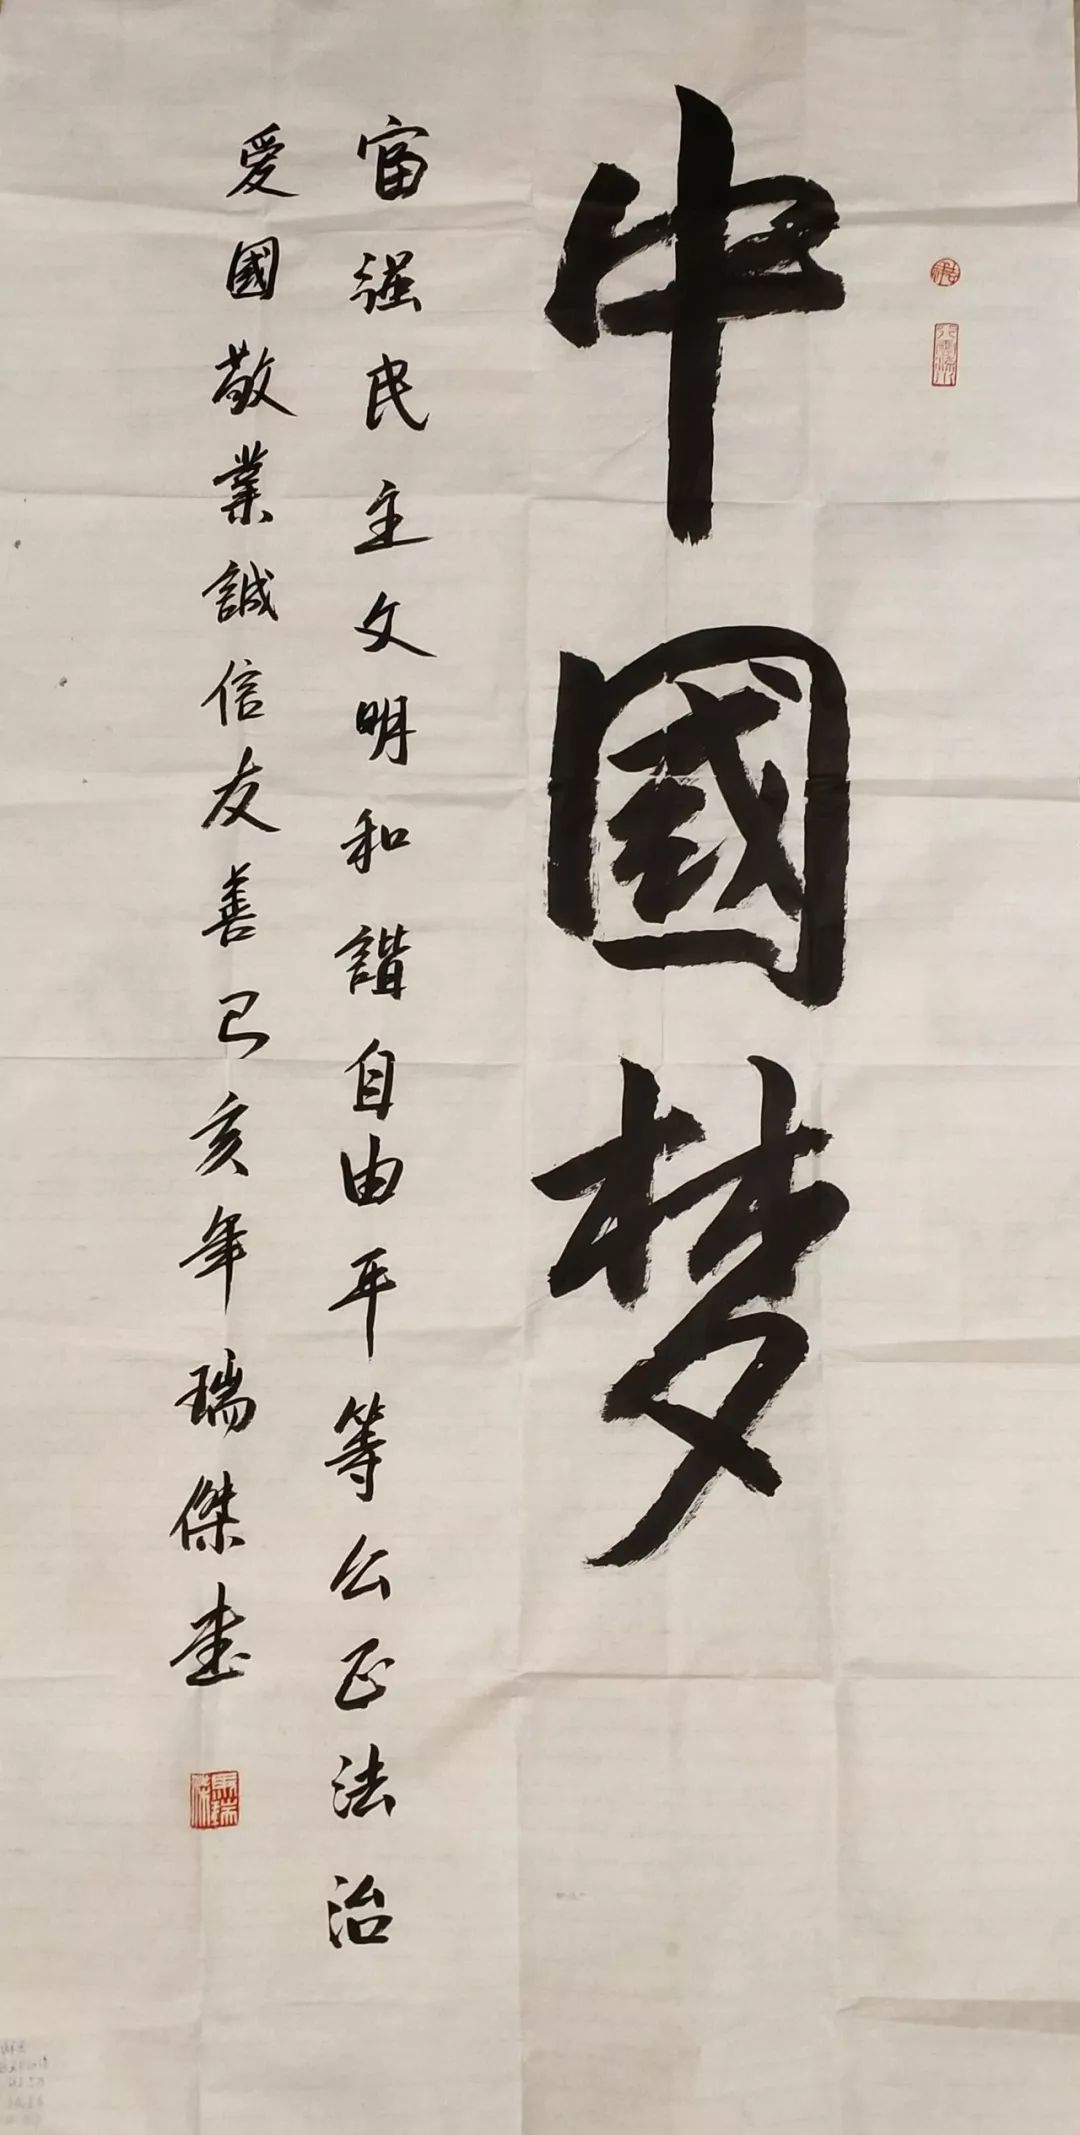 中國梦
富强民主文明和諧自由平等公正法治
爱國敬業誠信友善己亥年瑞傑書